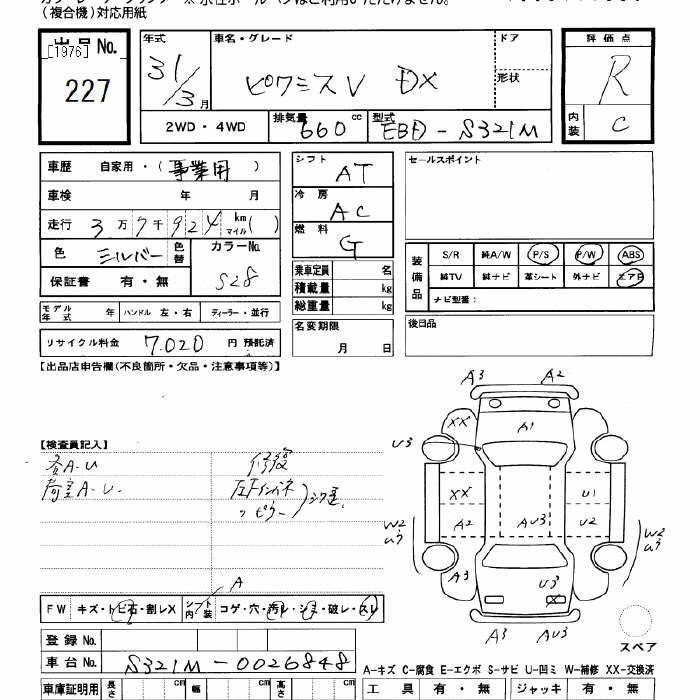 (複合機)対応用紙
出品No.
[1976]
227
年式
31/3月
車名・グレード
ピクシスV DX
ドア
形状
評価点
R
内装
C
2WD・4WD
排気量 660 cc
型式 EBD-S321M
車歴 自家用・(事業用)
車検 年 月
走行 3万7千924 km マイル( )
色 シルバー 色替
カラーNo.
S28
保証書 有・無
モデル年式 年 ハンドル 左・右 ディーラー・並行
リサイクル料金 7.020 円 預託済
シフト AT
冷房 AC
燃料 G
乗車定員 名
積載量 kg
総重量 kg
名変期限
月 日
セールスポイント
装備品
S/R 純A/W P/S P/W ABS
純TV 純ナビ 革シート 外ナビ エアB
ナビ型番:
後日品
【出品店申告欄(不良箇所・欠品・注意事項等)】
【検査員記入】
荷室A-U.
修復
左Fインパネ
〃 ピラー
A3 A2
XX A1
U3
XX U1
A2 AU3 U2
W2 U3
W2 U3
A3 U3
X
A3 AU3
スペア
A
FW キズ・トビ石・割レX シート内装 コゲ・穴・汚レ・シミ・破レ・スレ
登録No.
車台No. S321M-0026848
A-キズ C-腐食 E-エクボ S-サビ U-凹ミ W-補修 XX-交換済
車庫証明用 長さ cm 幅 cm 高さ cm
工具 有・無 ジャッキ 有・無